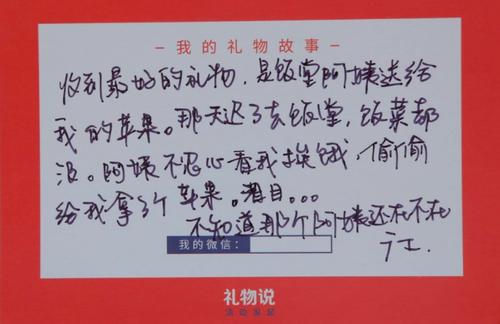 我的礼物故事
收到最好的礼物，是饭堂阿姨送给
我的苹果。那天迟了去饭堂，饭菜都
没。阿姨不忍心看我挨饿，偷偷
给我拿了个苹果。泪目...
不知道那个阿姨还在不在
我的微信：
礼物说
活动发起